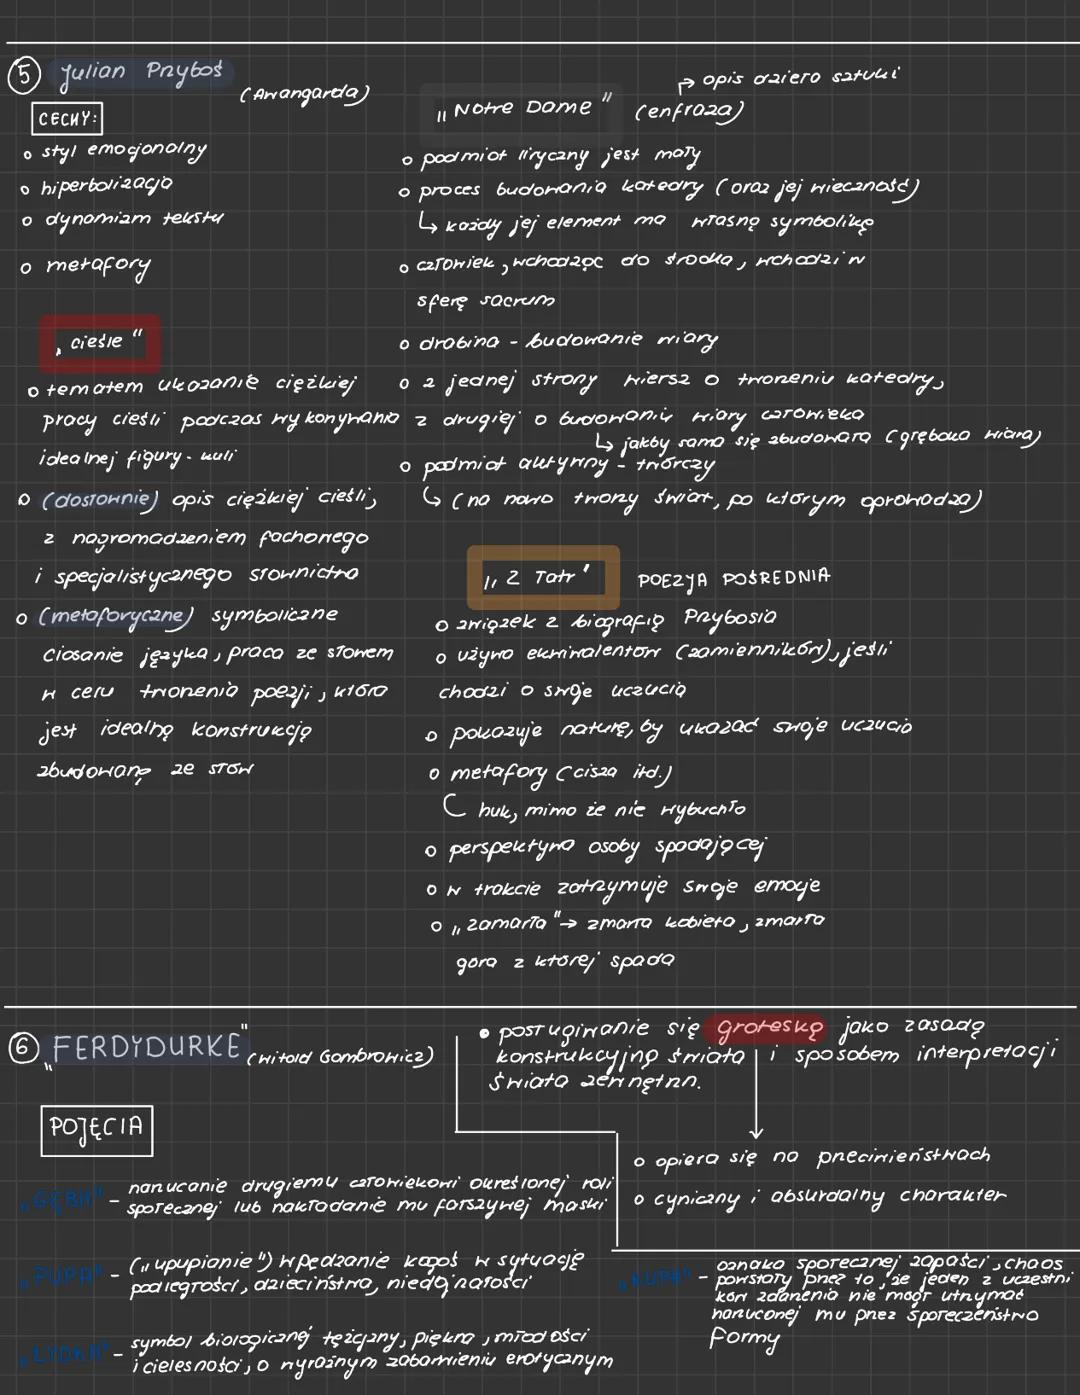 5 Julian Przyboś
(Awangarda)
CECHY:
o styl emocjonalny
o hiperbolizacja
o dynamizm tekstu
o metafory
„cieśle"
o tematem ukazanie ciężkiej
pracy cieśli podczas wykonywania
idealnej figury - kuli
o (dosłownie) opis ciężkiej cieśli,
z nagromadzeniem fachowego
i specjalistycznego słownictwa
o (metaforyczne) symboliczne
ciosanie języka, praca ze słowem
w celu tworzenia poezji, która
jest idealną konstrukcją
zbudowaną ze słów
„Notre Dame" (enfraza)
→ opis dzieła sztuki
o podmiot liryczny jest mały
o proces budowania katedry (oraz jej wieczność)
↳ każdy jej element ma własną symbolikę
o człowiek, wchodząc do środka, wchodzi w
sferę sacrum
o drabina - budowanie wiary
o z jednej strony wiersz o tworzeniu katedry,
z drugiej o budowaniu wiary człowieka
↳ jakby sama się zbudowała (głęboka wiara)
o podmiot aktywny - twórczy
↳ (na nowo tworzy świat, po którym oprowadza)
„Z Tatr" POEZJA POŚREDNIA
o związek z biografią Przybosia
o używa ekwiwalentów (zamienników), jeśli
chodzi o swoje uczucia
o pokazuje naturę, by ukazać swoje uczucia
o metafory (cisza itd.)
huk, mimo że nie wybuchło
o perspektywa osoby spadającej
o w trakcie zatrzymuje swoje emocje
o „zamarła" → zmarła kobieta, zmarła
góra z której spada
6 „FERDYDURKE" (Witold Gombrowicz)
• posługiwanie się groteską jako zasadą
konstrukcyjną świata i sposobem interpretacji
świata zewnętrzn.
o opiera się na przeciwieństwach
o cyniczny i absurdalny charakter
POJĘCIA
„GĘBA" - narzucanie drugiemu człowiekowi określonej roli
społecznej lub nakładanie mu fałszywej maski
„PUPA" - („upupianie") wpędzanie kogoś w sytuację
podległości, dzieciństwa, niedojrzałości
„ŁYDKA" - symbol biologicznej tężyzny, piękna, młodości
i cielesności, o wyraźnym zabarwieniu erotycznym
„KUPA" - oznaka społecznej zapaści, chaos
powstały przez to, że jeden z uczestni
ków zdarzenia nie mógł utrzymać
narzuconej mu przez społeczeństwo
formy